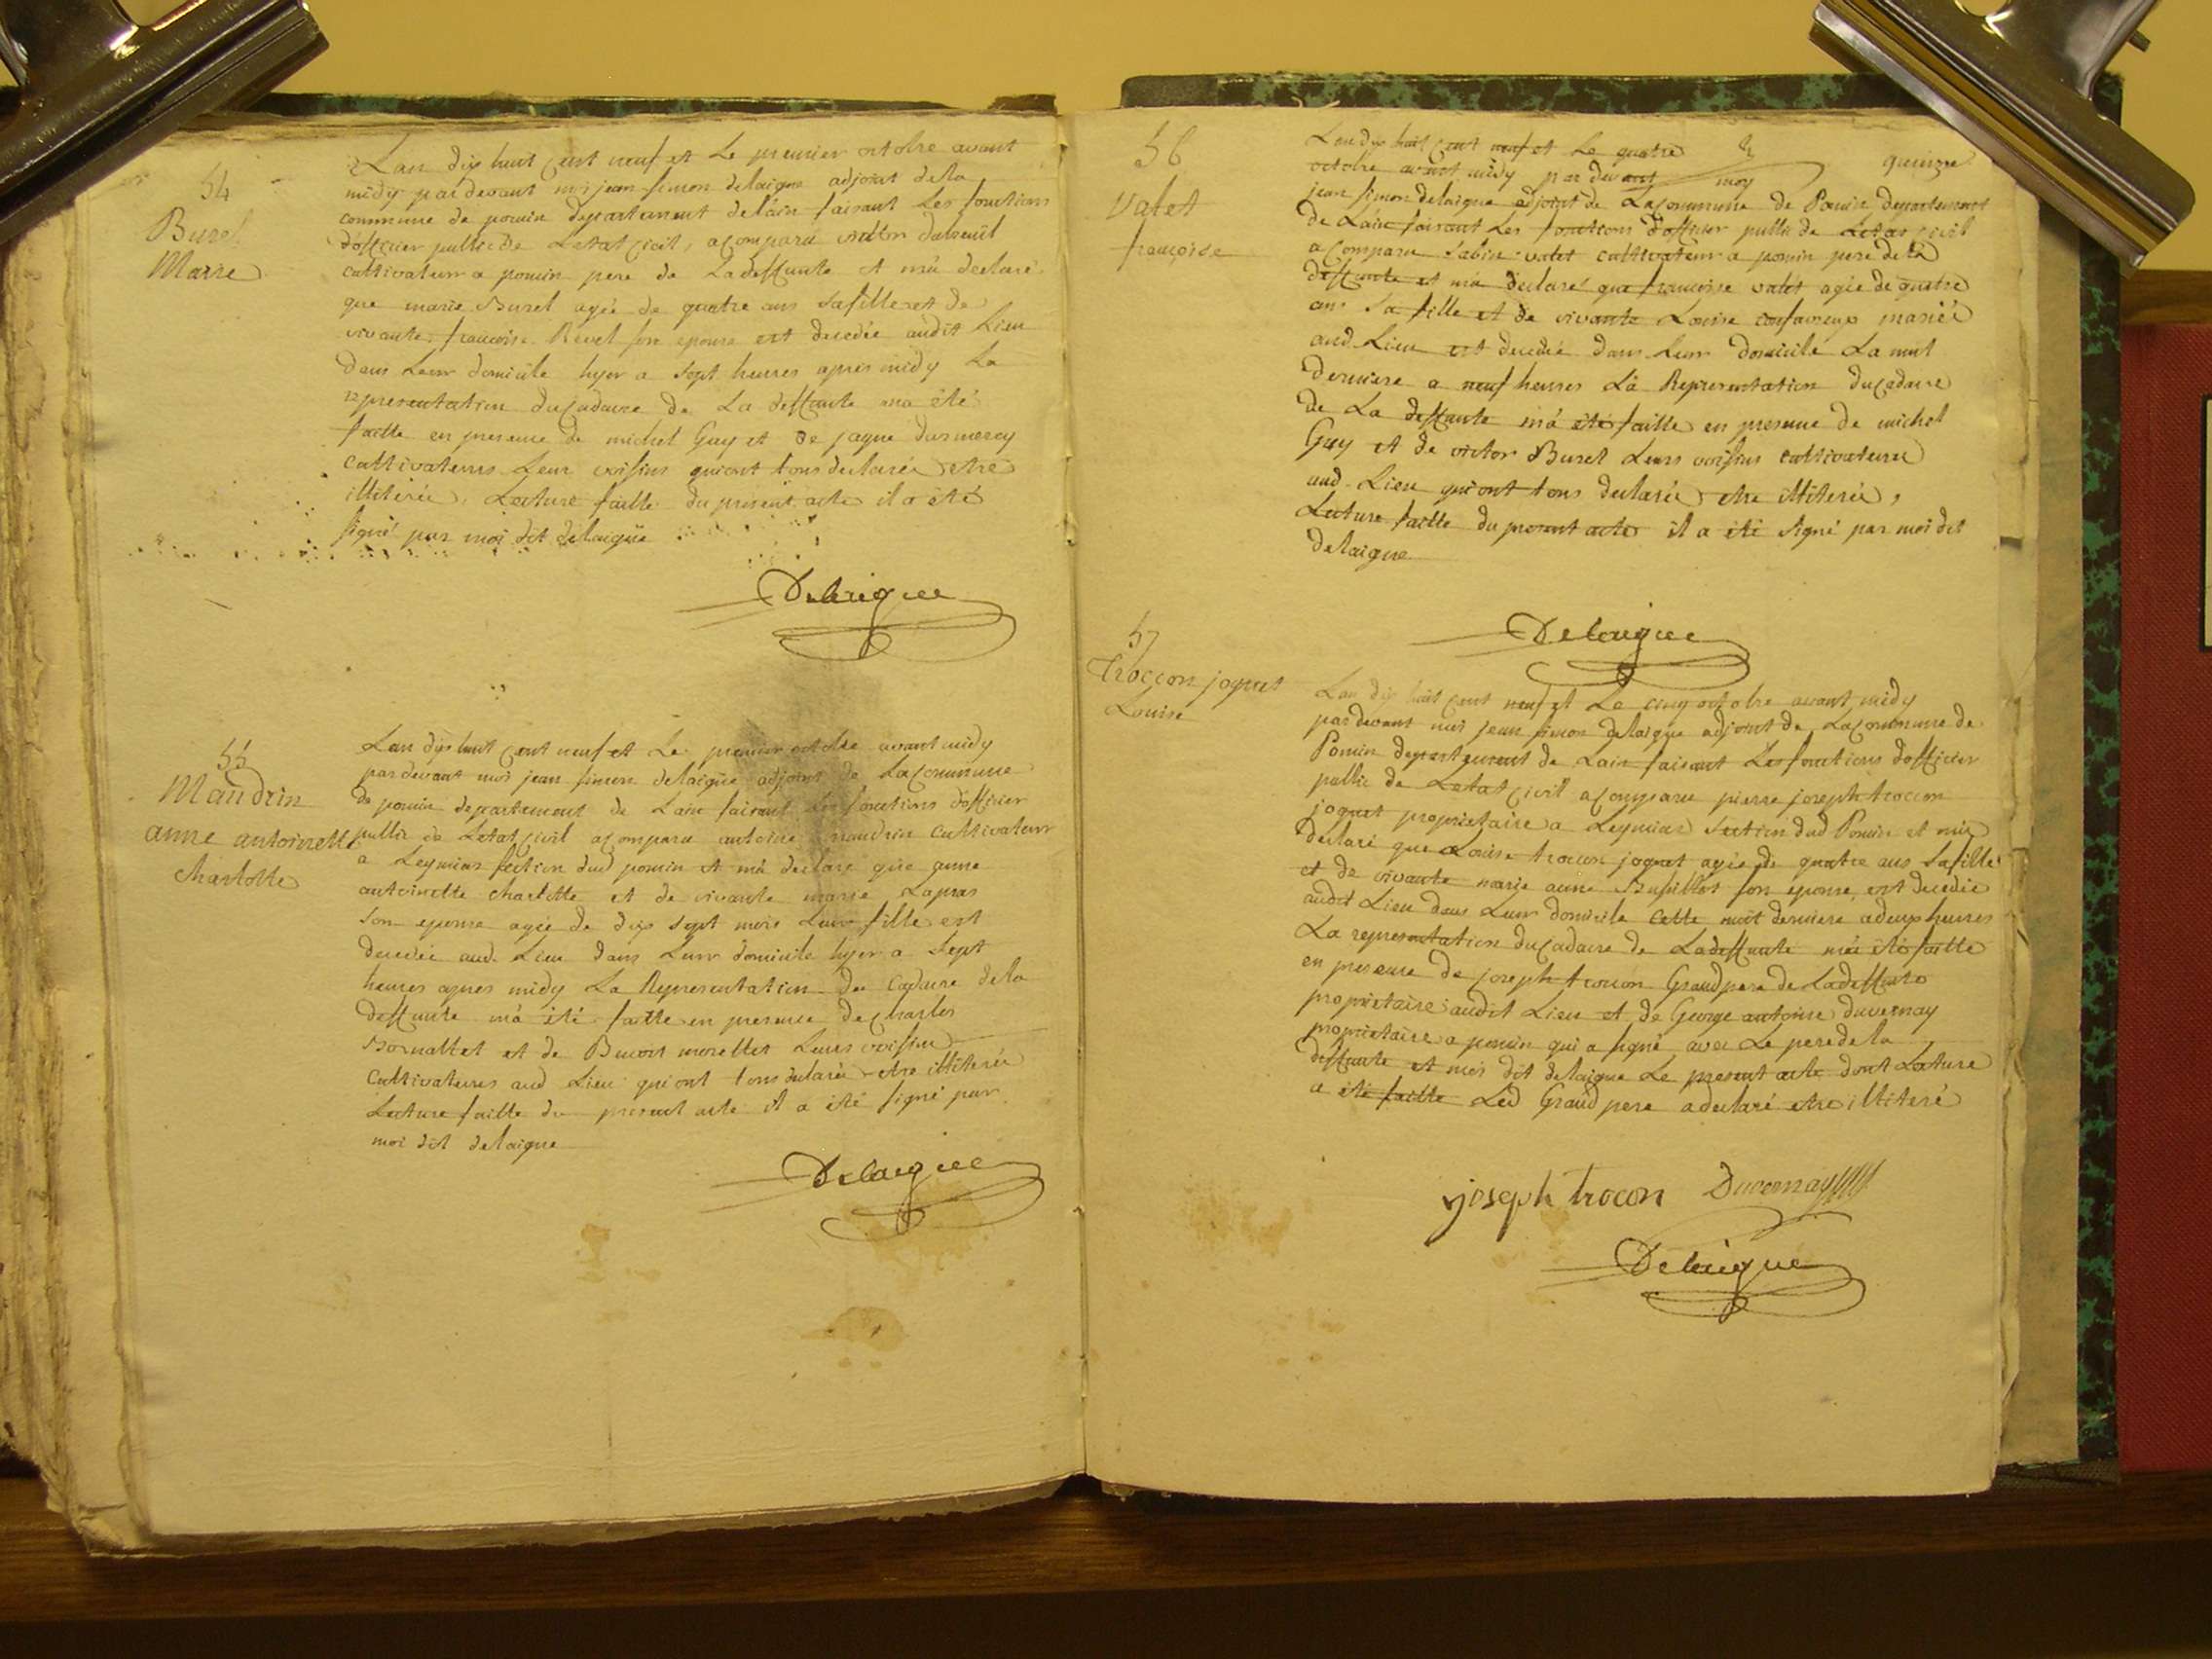 54
Burel
Marie
Lan dix huit cent neuf et Le premier octobre avant
midy pardevant moi jean simon delaigue adjoint dela
commune de poncin departement delain faisant Les fonctions
dofficier public de Letat civil, a comparu victor
cultivateur a poncin pere de La deffunte et ma declaré
que marie Burel agée de quatre ans sa fille et de
vivante francoise Revel son epouse est decedée audit Lieu
dans Leur domicile hyer a sept heures apres midy La
representation du cadavre de La deffunte ma été
faitte en presence de michel Guy et de jaque
cultivateurs Leur voisins qui ont tous declarée etre
illiterée, Lecture faitte du présent acte il a été
signé par moi dit delaigue
Delaigue
55
Maudrin
anne antoinette
charlotte
Lan dix huit cent neuf et Le premier octobre avant midy
pardevant moi jean simon delaigue adjoint de La commune
de poncin departement de Lain faisant Les fonctions dofficier
public de Letat civil a comparu antoine maudrin cultivateur
a Leymias section dud poncin et ma declaré que anne
antoinette charlotte et de vivante marie Lapras
son epouse agée de dix sept mois Leur fille est
decedée aud. Lieu dans Leur domicile hyer a sept
heures apres midy La Representation du cadavre dela
deffunte ma été faitte en presence de charles
et de Benoit morellet Leurs voisins
cultivateurs aud Lieu qui ont tous declarée etre illiterée
Lecture faitte du present acte il a été signé par
moi dit delaigue
Delaigue
quinze
56
Valet
françoise
Lan dix huit cent neuf et Le quatre
octobre avant midy par devant moy
jean simon delaigue adjoint de La commune de Poncin departement
de Lain faisant Les fonctions dofficier public de Letat civil
a comparu sabin valet cultivateur a poncin pere dela
deffunte et ma declaré que francoise valet agée de quatre
ans sa fille et de vivante Louise mariée
aud. Lieu est decedée dans Leur domicile La nuit
derniere a neuf heures La Representation du cadavre
de La deffunte ma été faitte en presence de michel
Guy et de victor Burel Leurs voisins cultivateurs
aud. Lieu qui ont tous declarée etre illiterée,
Lecture faitte du present acte il a été signé par moi dit
delaigue
Delaigue
57
Troccon joguet
Louise
Lan dix huit cent neuf et Le cinq octobre avant midy
pardevant moi jean simon delaigue adjoint de La commune de
Poncin departement de Lain faisant Les fonctions dofficier
public de Letat civil a comparu pierre joseph troccon
joguet proprietaire a Leymias section dud Poncin et ma
declaré que Louise troccon joguet agée de quatre ans sa fille
et de vivante marie anne son epouse, est decedée
audit Lieu dans Leur domicile cette nuit derniere a deux heures
La representation du cadavre de La deffunte ma été faitte
en presence de joseph troccon Grand pere de La deffunte
proprietaire audit Lieu et de George antoine duvernay
proprietaire a poncin qui a signé avec Le pere dela
deffunte et moi dit delaigue Le present acte dont Lecture
a été faitte Led Grand pere a declaré etre illiteré
joseph trocon Duvernay
Delaigue